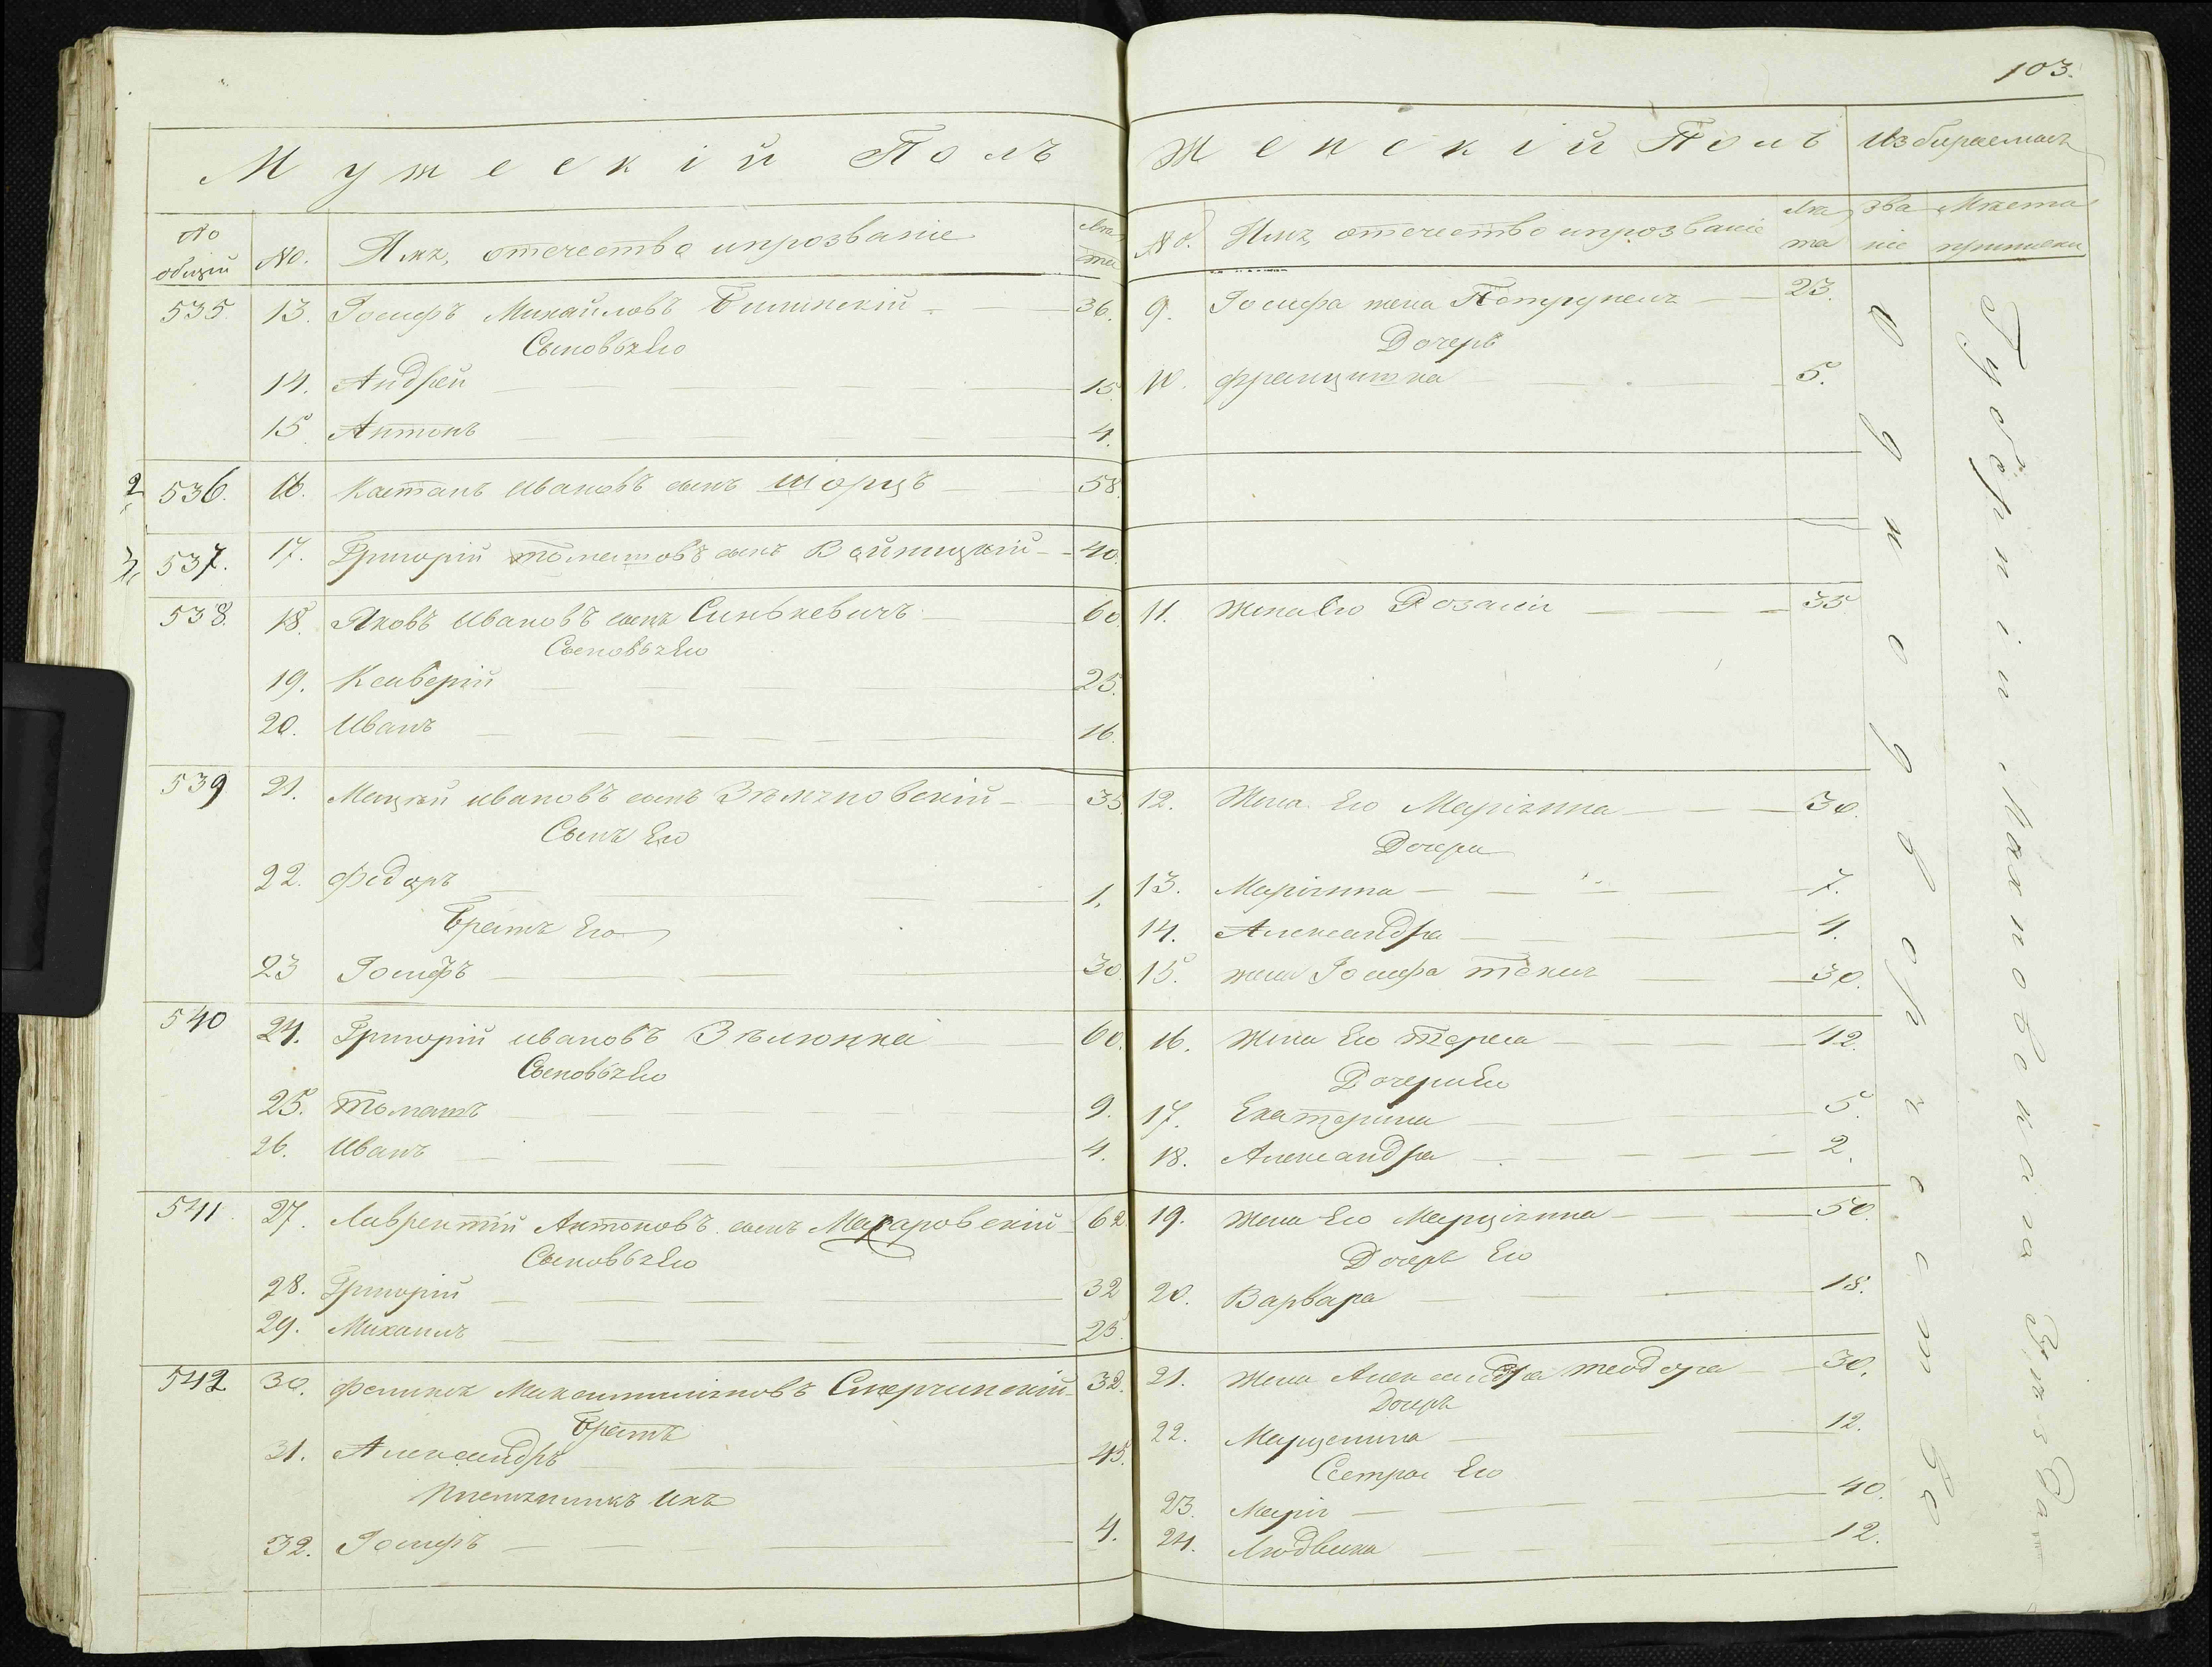 103.
Мужескій Полъ
№ общій
№.
Имя, отчество и прозваніе
Лѣта
535. 13. Іосифъ Михайловъ Билинскій 36.
Сыновья Его
14. Андрей 15.
15. Антонъ 4.
2 536. 16. Каетанъ Ивановъ сынъ Шорцъ 58.
537. 17. Григорій Томашовъ сынъ Войницкій 40.
538. 18. Яковъ Ивановъ сынъ Синькевичъ 60.
Сыновья Его
19. Ксаверій 25.
20. Иванъ 16.
539 21. Мацѣй Ивановъ сынъ 35.
Сынъ Его
22. Федоръ 1.
Братъ Его
23 Іосифъ 30.
540 24. Григорій Ивановъ 60.
Сыновья Его
25. Томашъ 9.
26. Иванъ 4.
541 27. Лаврентій Антоновъ сынъ Макаровскій 62.
Сыновья Его
28. Григорій 32
29. Михаилъ 25.
542 30. Феликсъ Максимиліяновъ Скерчинскій 32.
Братъ
31. Александръ 45.
Племянникъ Ихъ
32. Іосифъ 4.
Женскій Полъ
Избираемыя
№.
Имя, отчество и прозваніе
Лѣта
Званіе
Мѣста приписки
9. Іосифа жена Петрунеля 23.
Дочерь
10. Францишка 5.
11. Жена Его Розалія 35
12. Жена Его Маріянна 30.
Дочери
13. Маріянна 7.
14. Александра 4.
15. жена Іосифа Текля 30.
16. Жена Его Тереса 42.
Дочери Его
17. Екатерина 5.
18. Александра 2.
19. Жена Его Марціянна 50.
Дочерь Его
20. Варвара 18.
21. Жена Александра Теодора 30.
Дочерь
22. Марцелина 12.
Сестры Его
23. Марія 40.
24. Людвика 12.
Однодворческое
Губерніи Махновскаго Уѣзда